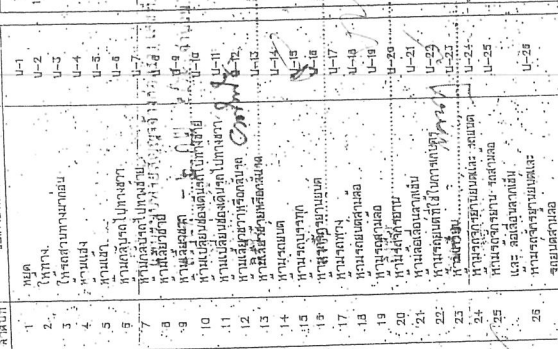 ลำดับที่
1 หยุด บ-1
2 ให้ทาง บ-2
3 ให้รถสวนทางมาก่อน บ-3
4 ห้ามแซง บ-4
5 ห้ามเข้า บ-5
6 ห้ามกลับรถไปทางขวา บ-6
7 ห้ามกลับรถไปทางซ้าย บ-7
8 ห้ามเลี้ยวซ้าย
9 บ-9
10 ห้ามเปลี่ยนช่องเดินรถไปทางซ้าย บ-10
11 ห้ามเปลี่ยนช่องเดินรถไปทางขวา บ-11
12 ห้ามเลี้ยวขวาหรือกลับรถ บ-12
13 ห้ามเลี้ยวซ้ายหรือกลับรถ บ-13
14 ห้ามรถยนต์ บ-14
15 ห้ามรถบรรทุก บ-15
16 ห้ามรถจักรยานยนต์ บ-16
17 ห้ามรถพ่วง บ-17
18 ห้ามรถยนต์สามล้อ บ-18
19 ห้ามรถสามล้อ บ-19
20 ห้ามรถจักรยาน บ-20
21 ห้ามล้อเลื่อนลากเข็น บ-21
22 ห้ามรถยนต์ที่ใช้ในการเกษตร บ-22
23 ห้ามเกวียน บ-23
24 ห้ามรถจักรยานยนต์และรถยนต์ บ-24
25 ห้ามรถจักรยาน รถสามล้อ บ-25
และ ล้อเลื่อนลากเข็น
26 ห้ามรถจักรยานยนต์และ บ-26
รถยนต์สามล้อ